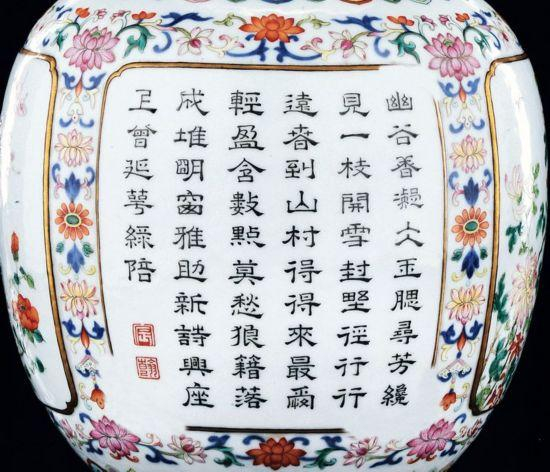 幽谷香凝大玉腮尋芳纔
見一枝開雪封野徑行行
遠春到山村得得來最愛
輕盈含數點莫愁狼籍落
成堆明窗雅助新詩興座
上曾延萼綠陪
宸
翰